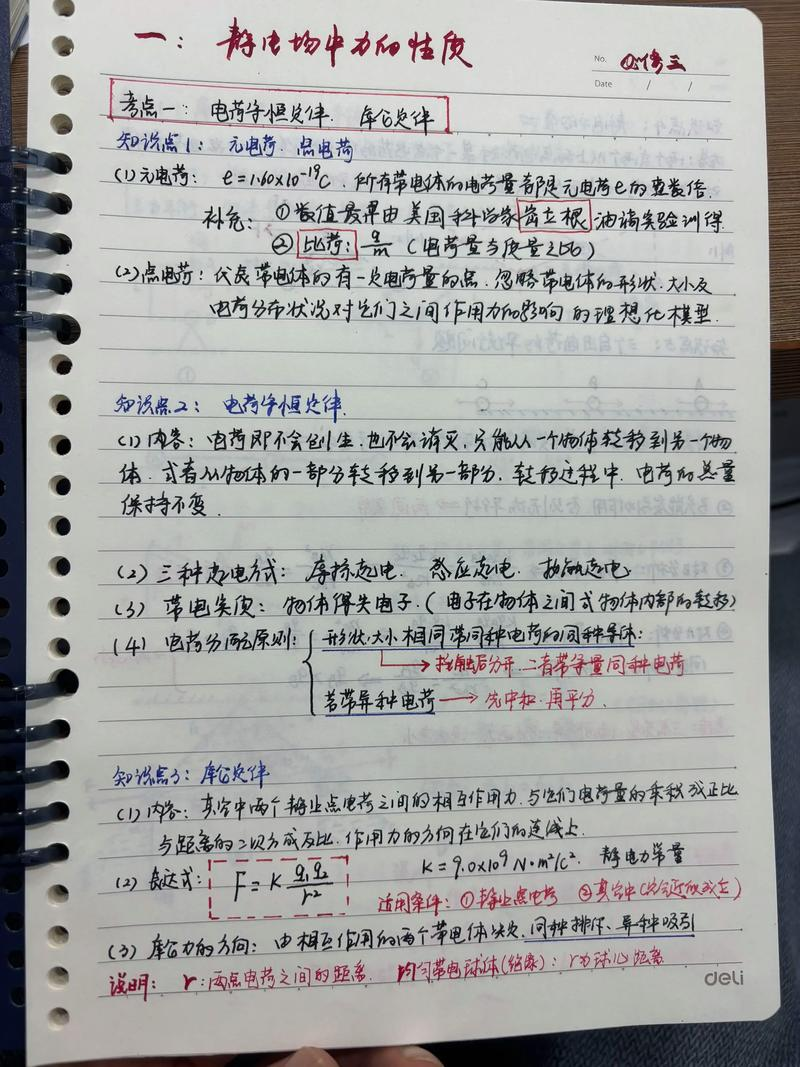 一：静电场中力的性质
No. 必修三
Date / /
考点一：电荷守恒定律、库仑定律
知识点1：元电荷、点电荷
(1)元电荷：e=1.60×10⁻¹⁹C，所有带电体的电荷量都是元电荷e的整数倍.
补充：①数值最早由美国科学家密立根油滴实验测得
②比荷：q/m（电荷量与质量之比）
(2)点电荷：代表带电体的有一定电荷量的点，忽略带电体的形状、大小及
电荷分布状况对它们之间作用力的影响的理想化模型.
知识点2：电荷守恒定律.
(1)内容：电荷即不会创生，也不会消灭，只能从一个物体转移到另一个物
体，或者从物体的一部分转移到另一部分，转移过程中，电荷的总量
保持不变.
(2)三种起电方式：摩擦起电、感应起电、接触起电
(3)带电实质：物体得失电子.（电子在物体之间或物体内部的转移）
(4)电荷分配原则：形状、大小相同带同种电荷的同种导体：
接触后分开，二者带等量同种电荷
若带异种电荷→先中和，再平分.
知识点3：库仑定律
(1)内容：真空中两个静止点电荷之间的相互作用力，与它们电荷量的乘积成正比
与距离的二次方成反比，作用力的方向在它们的连线上.
(2)表达式：F=K q₁q₂/r² K=9.0×10⁹N·m²/C². 静电力常量
适用条件：①静止点电荷 ②真空中（空气近似成立）
(3)库仑力的方向：由相互作用的两个带电体决定，同种排斥、异种吸引
说明：r：两点电荷之间的距离. 均匀带电球体(绝缘)：r为球心距离
deli